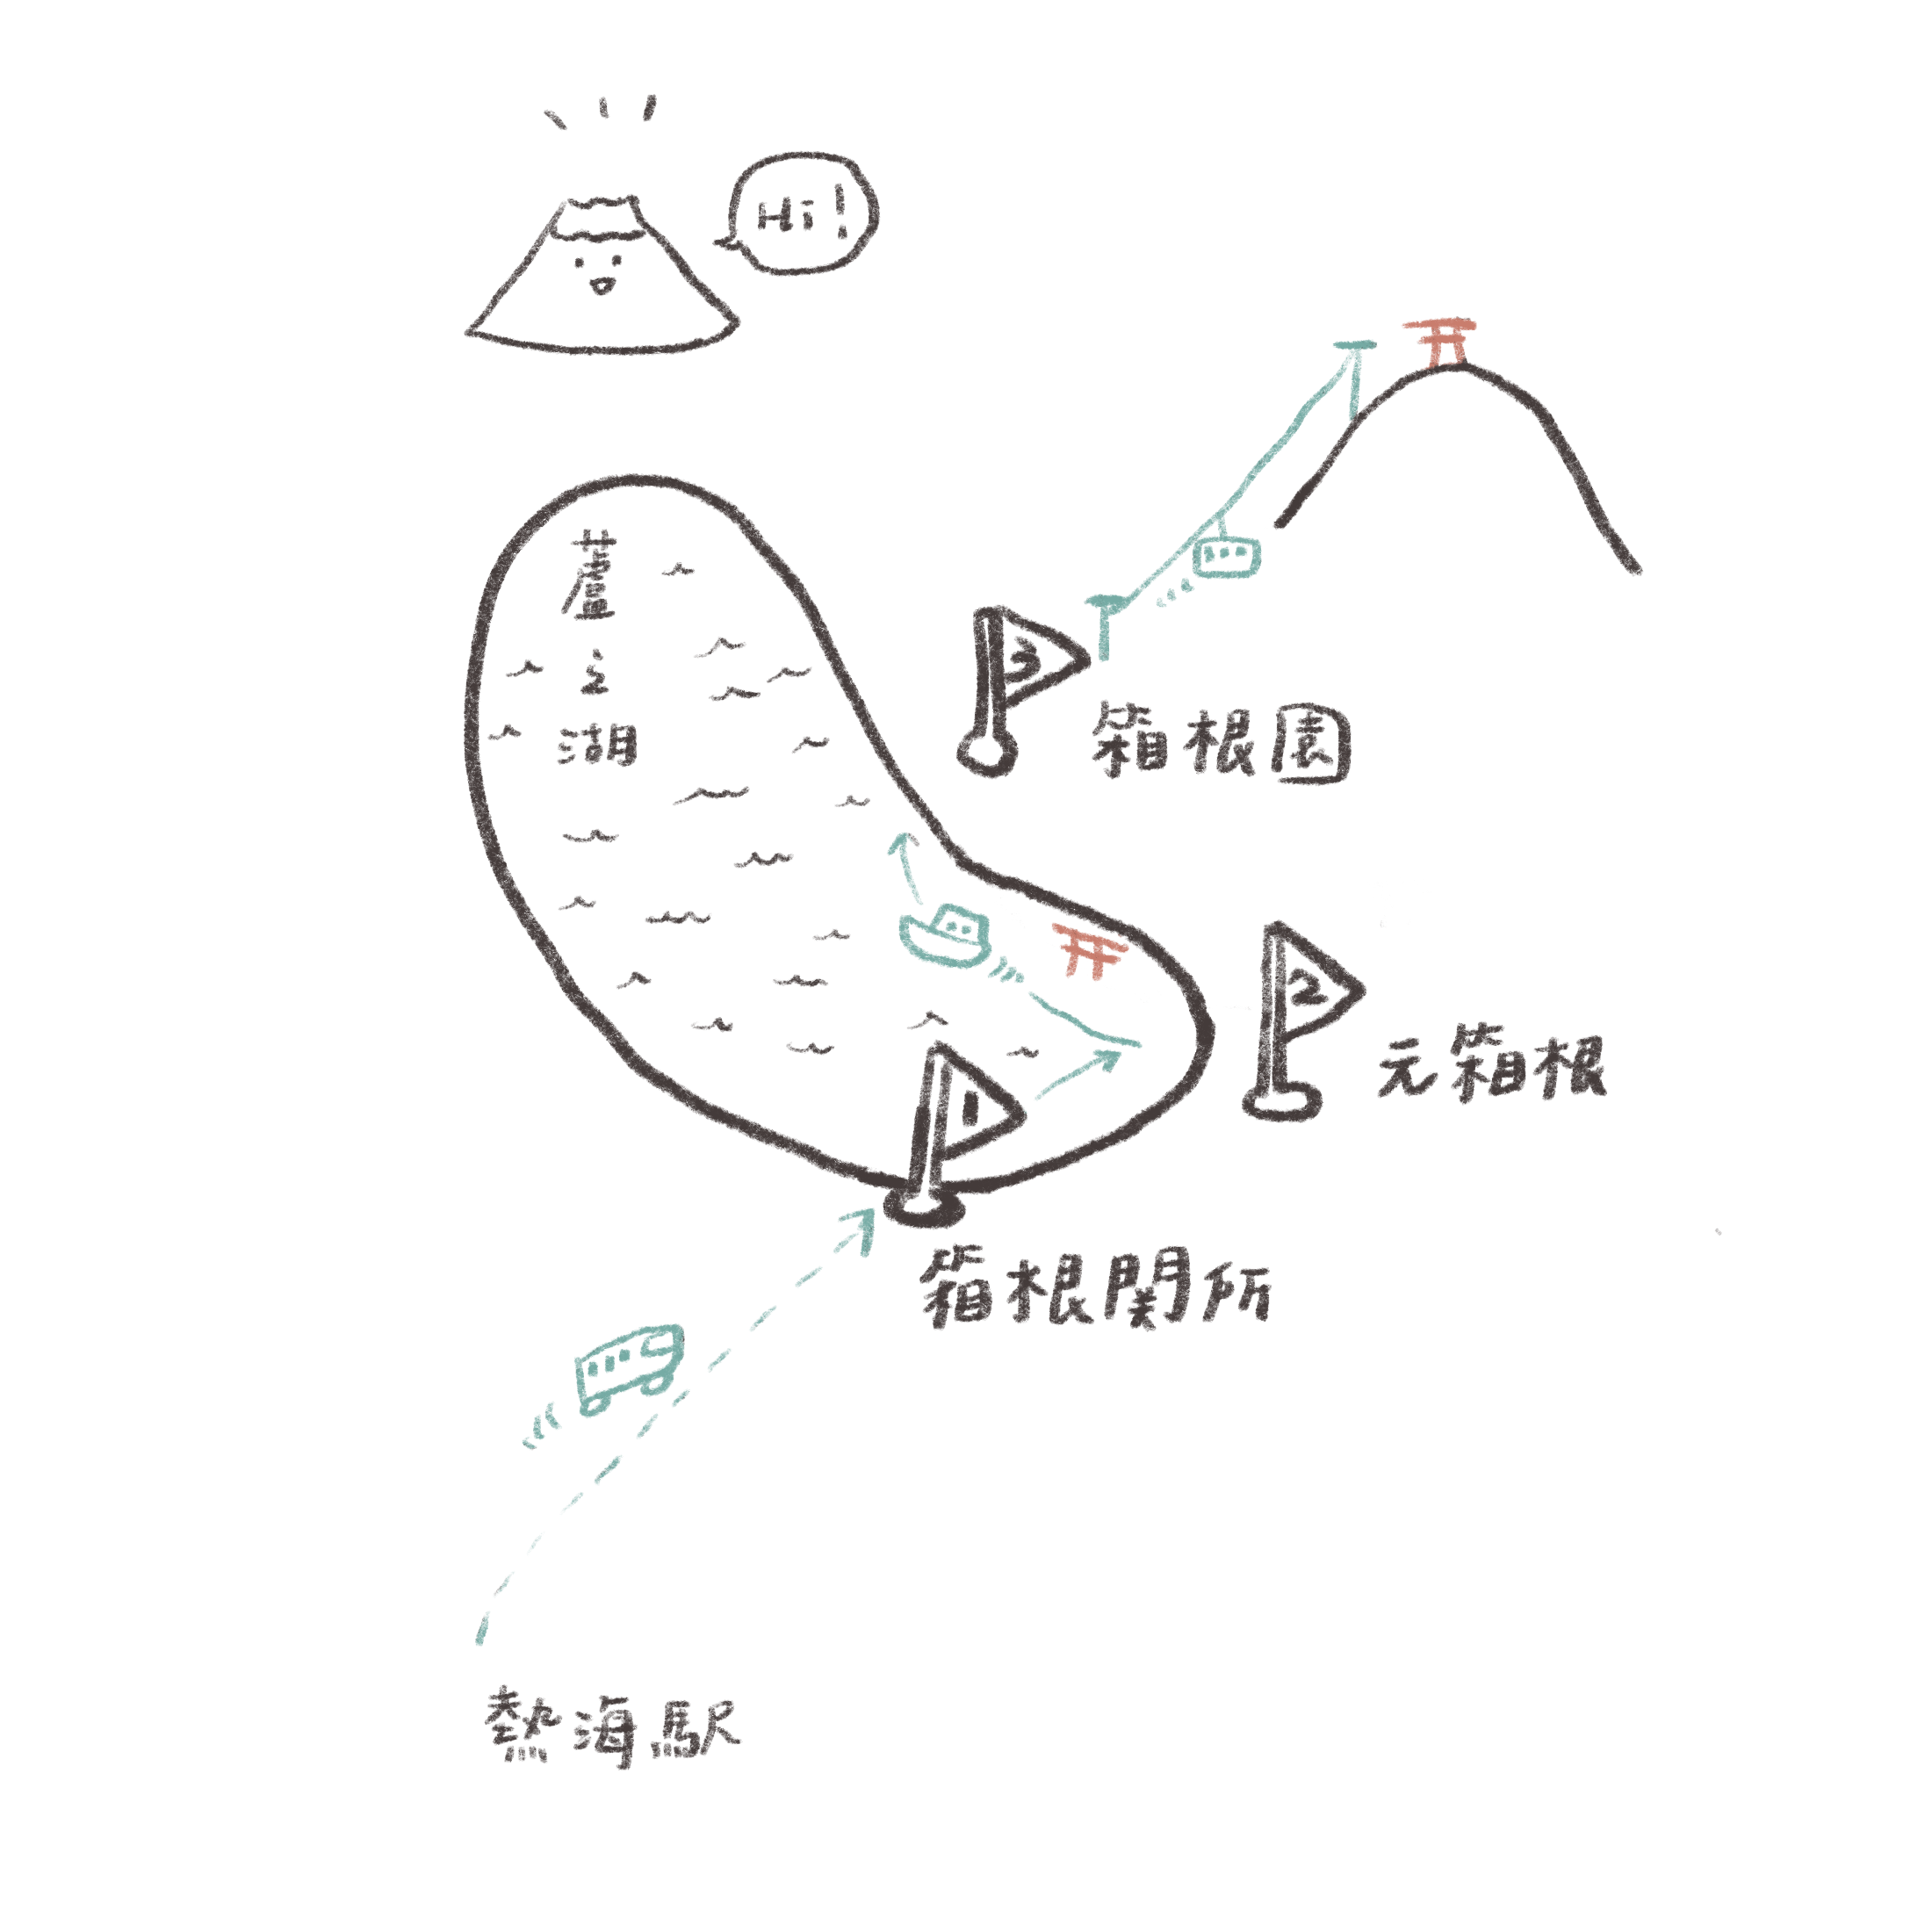 Hi!
蘆之湖
3
箱根園
2
元箱根
1
箱根関所
熱海駅